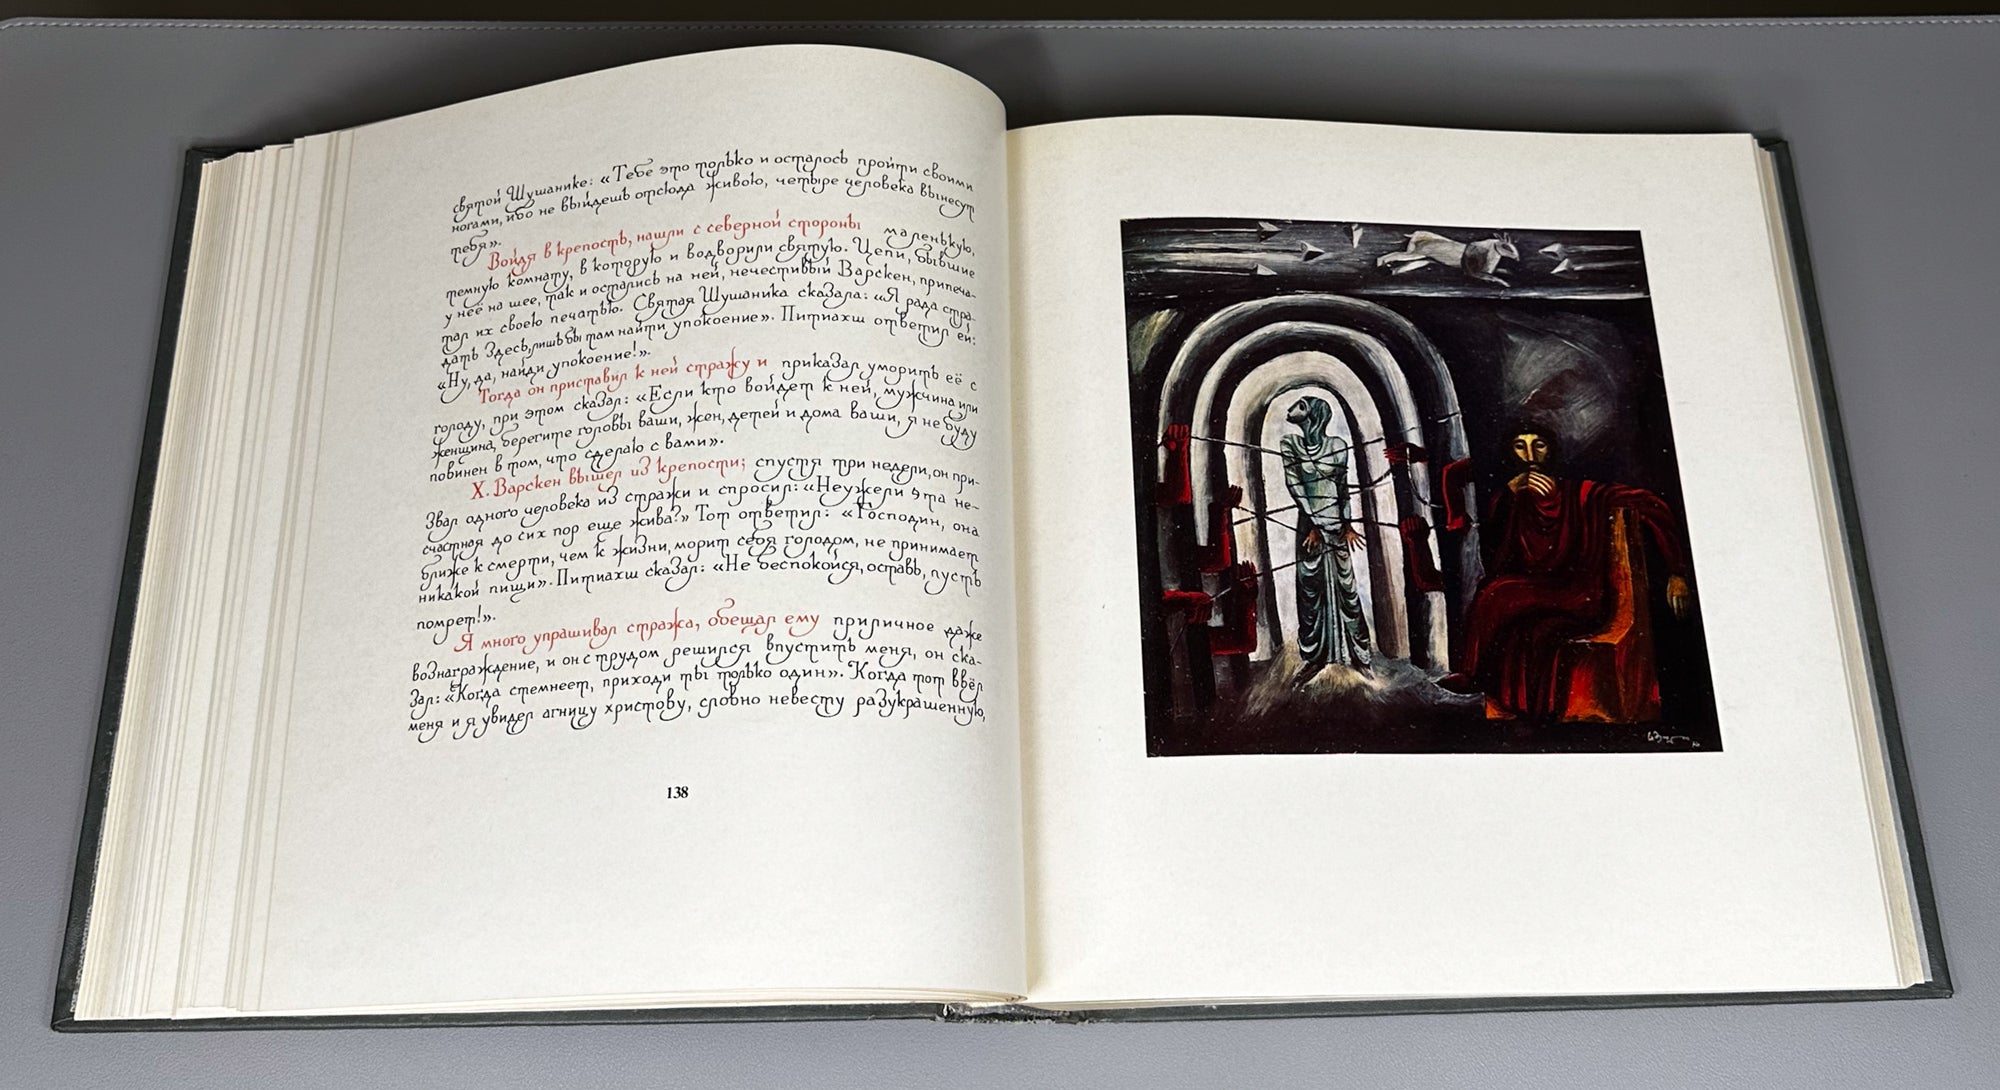 святой Шушанике: «Тебе это только и осталось пройти своими
ногами, ибо не выйдешь отсюда живою, четыре человека вынесут
тебя».
Войдя в крепость, нашли с северной стороны маленькую,
темную комнату, в которую и водворили святую. Цепи, бывшие
у неё на шее, так и остались на ней, нечестивый Варскен, припеча-
тал их своею печатью. Святая Шушаника сказала: «Я рада стра-
дать здесь, лишь бы там найти упокоение». Питиахш ответил ей:
«Ну, да, найди упокоение!».
Тогда он приставил к ней стражу и приказал уморить её с
голоду, при этом сказал: «Если кто войдет к ней, мужчина или
женщина, берегите головы ваши, жен, детей и дома ваши, я не буду
повинен в том, что сделаю с вами».
X. Варскен вышел из крепости; спустя три недели, он при-
звал одного человека из стражи и спросил: «Неужели эта не-
счастная до сих пор еще жива?» Тот ответил: «Господин, она
ближе к смерти, чем к жизни, морит себя голодом, не принимает
никакой пищи». Питиахш сказал: «Не беспокойся, оставь, пусть
помрет!».
Я много упрашивал стража, обещал ему приличное даже
вознаграждение, и он с трудом решился впустить меня, он ска-
зал: «Когда стемнеет, приходи ты только один». Когда тот ввёл
меня и я увидел агницу христову, словно невесту разукрашенную,
138